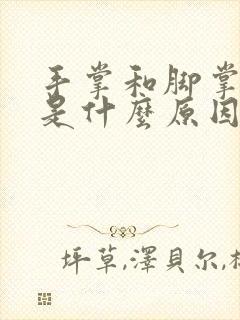 手掌和脚掌
是什麼原因
坪草,澤貝尔,格